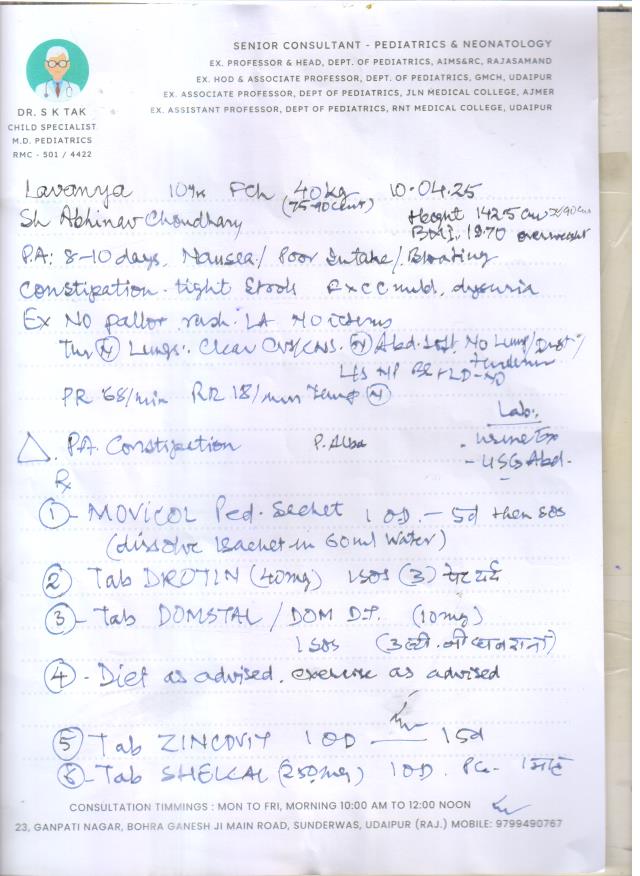 SENIOR CONSULTANT - PEDIATRICS & NEONATOLOGY
EX. PROFESSOR & HEAD, DEPT. OF PEDIATRICS, AIMS&RC, RAJASAMAND
EX. HOD & ASSOCIATE PROFESSOR, DEPT. OF PEDIATRICS, GMCH, UDAIPUR
EX. ASSOCIATE PROFESSOR, DEPT OF PEDIATRICS, JLN MEDICAL COLLEGE, AJMER
EX. ASSISTANT PROFESSOR, DEPT OF PEDIATRICS, RNT MEDICAL COLLEGE, UDAIPUR
DR. S K TAK
CHILD SPECIALIST
M.D. PEDIATRICS
RMC - 501 / 4422
Lavanya 10 yr FCh 40kg 10.04.25
(75-90 cent)
Sh Abhinav Choudhary Height 142.5 cm
BMI. 19.70 overweight
P.A: 8-10 days. Nausea / Poor Intake / Bloating
Constipation. tight stools mild. dysuria
Ex No pallor rash. LA No icterus
(N) Lungs: Clear CVS/CNS. (N) Abd. Soft. No Lump
PR 68/min RR 18/min Temp (N)
Lab:
△. P.A. Constipation P. Alba . Urine Ex
- USG Abd.
Rx
① - MOVICOL Ped. Sachet 1 OD. - 5d then sos
(dissolve 1 sachet in 60 ml Water)
② Tab DROTIN (40mg) 1 SOS (3) पेट दर्द
③ - Tab DOMSTAL / DOM D.T. (10mg)
1 SOS
④ - Diet as advised. exercise as advised
⑤ Tab ZINCOVIT 1 OD — 15d
⑥ - Tab SHELCAL (250mg) 1 OD. PC -
CONSULTATION TIMMINGS : MON TO FRI, MORNING 10:00 AM TO 12:00 NOON
23, GANPATI NAGAR, BOHRA GANESH JI MAIN ROAD, SUNDERWAS, UDAIPUR (RAJ.) MOBILE: 9799490767